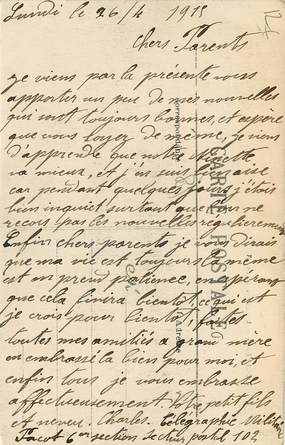 Lundi le 26/4 1915
Chers Parents
je viens par la présente vous
apporter un peu de mes nouvelles
qui sont toujours bonnes, et espère
que vous soyez de même, je viens
d'apprendre que notre Ninette
va mieux, et j'en suis bien aise
car pendant quelques jours j'étais
bien inquiet surtout que l'on ne
reçois pas les nouvelles régulièrement
Enfin chers parents je vous dirais
que ma vie est toujours la même
est on prend patience, en espérant
que cela finira bientôt, ce qui est
je crois pour bientôt, faites
toutes mes amitiés a grand mère
embrassé la bien pour moi, et
enfin tous je vous embrasse
affectueusement Votre petit fils
et neveu. Charles. Télégraphie Militaire
6em section Secteur postal 104
CARTE POSTALE
Correspondance
Adresse